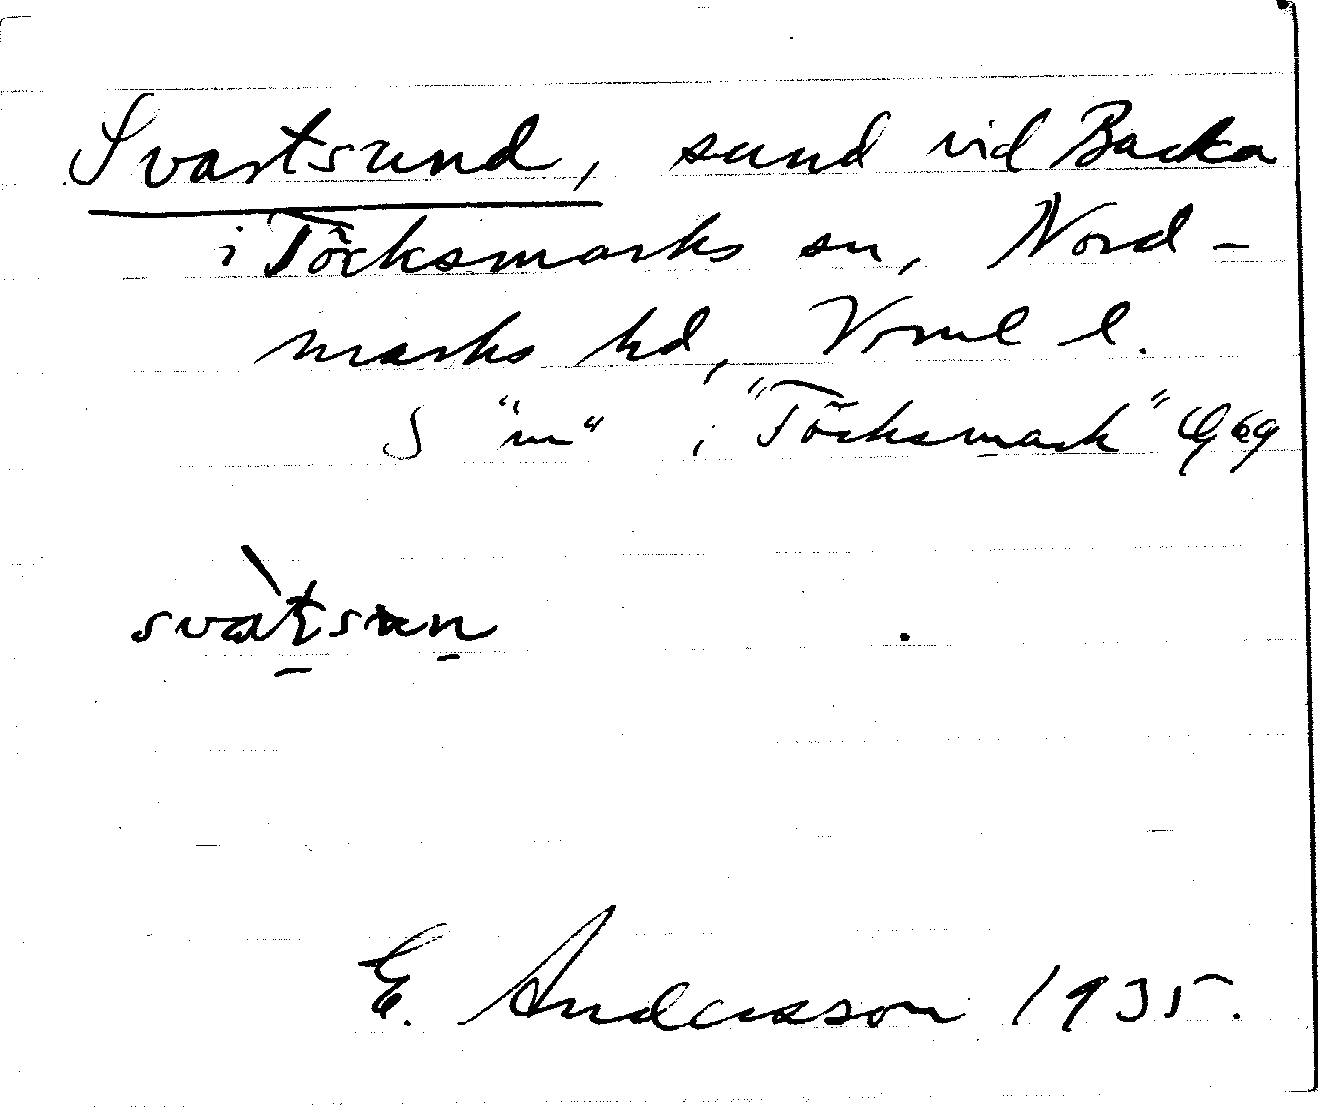 Svartsund, sund vid Backa
i Töcksmarks sn, Nord-
marks hd, Vrml l.
S "m" i "Töcksmark" G 69
svàtsun
E. Andersson 1935.